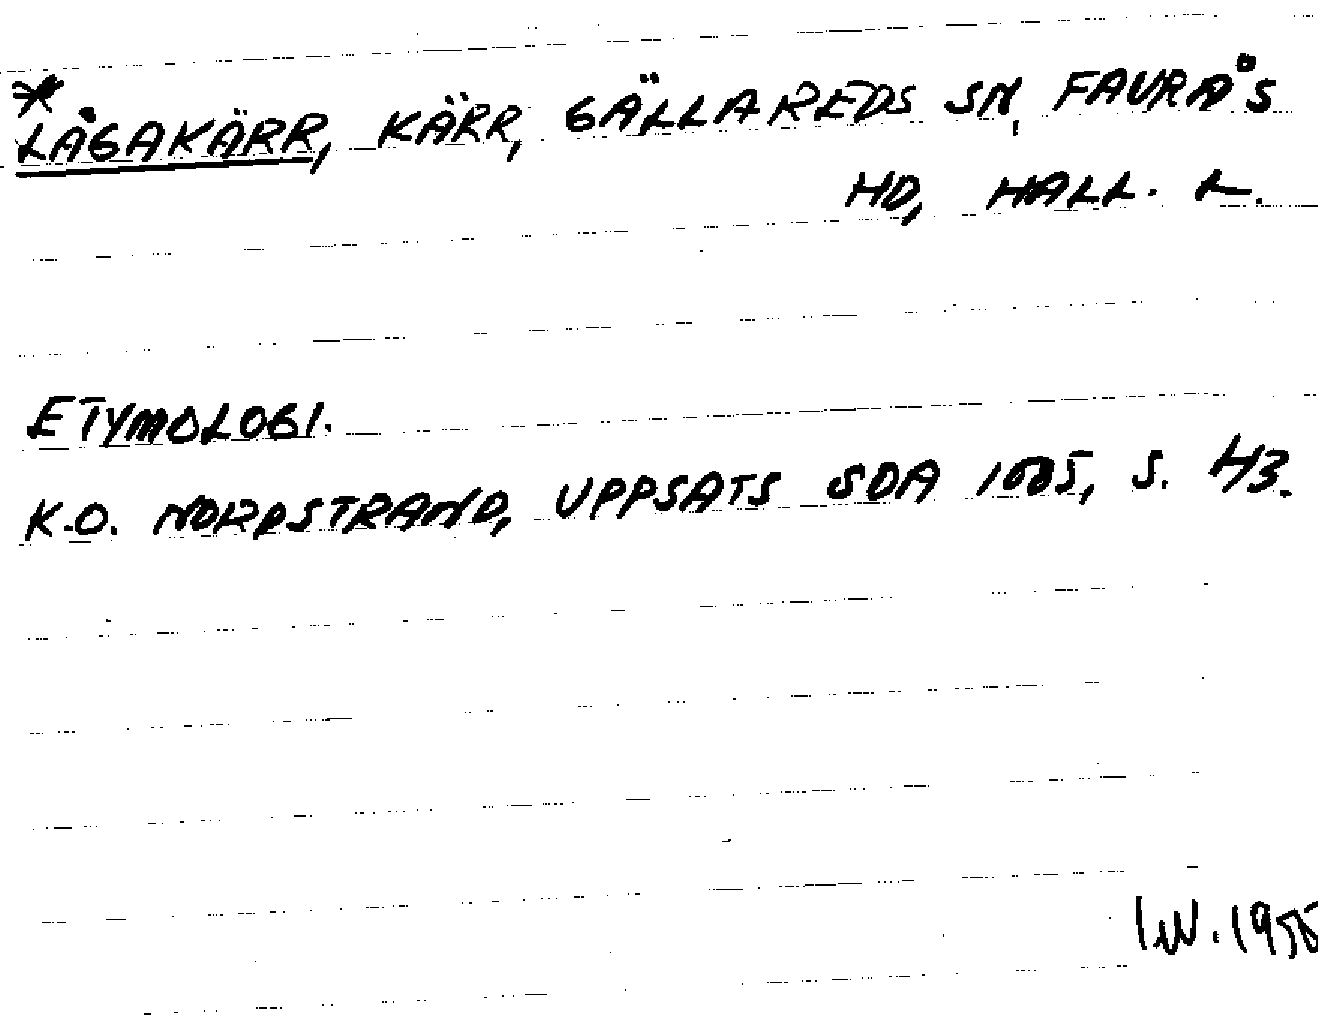 *
LÅGAKÄRR, KÄRR, GÄLLAREDS SN, FAURÅS
HD, HALL. L.
ETYMOLOGI.
K.O. NORDSTRAND, UPPSATS SOA 1005, S. 43.
IW. 1955